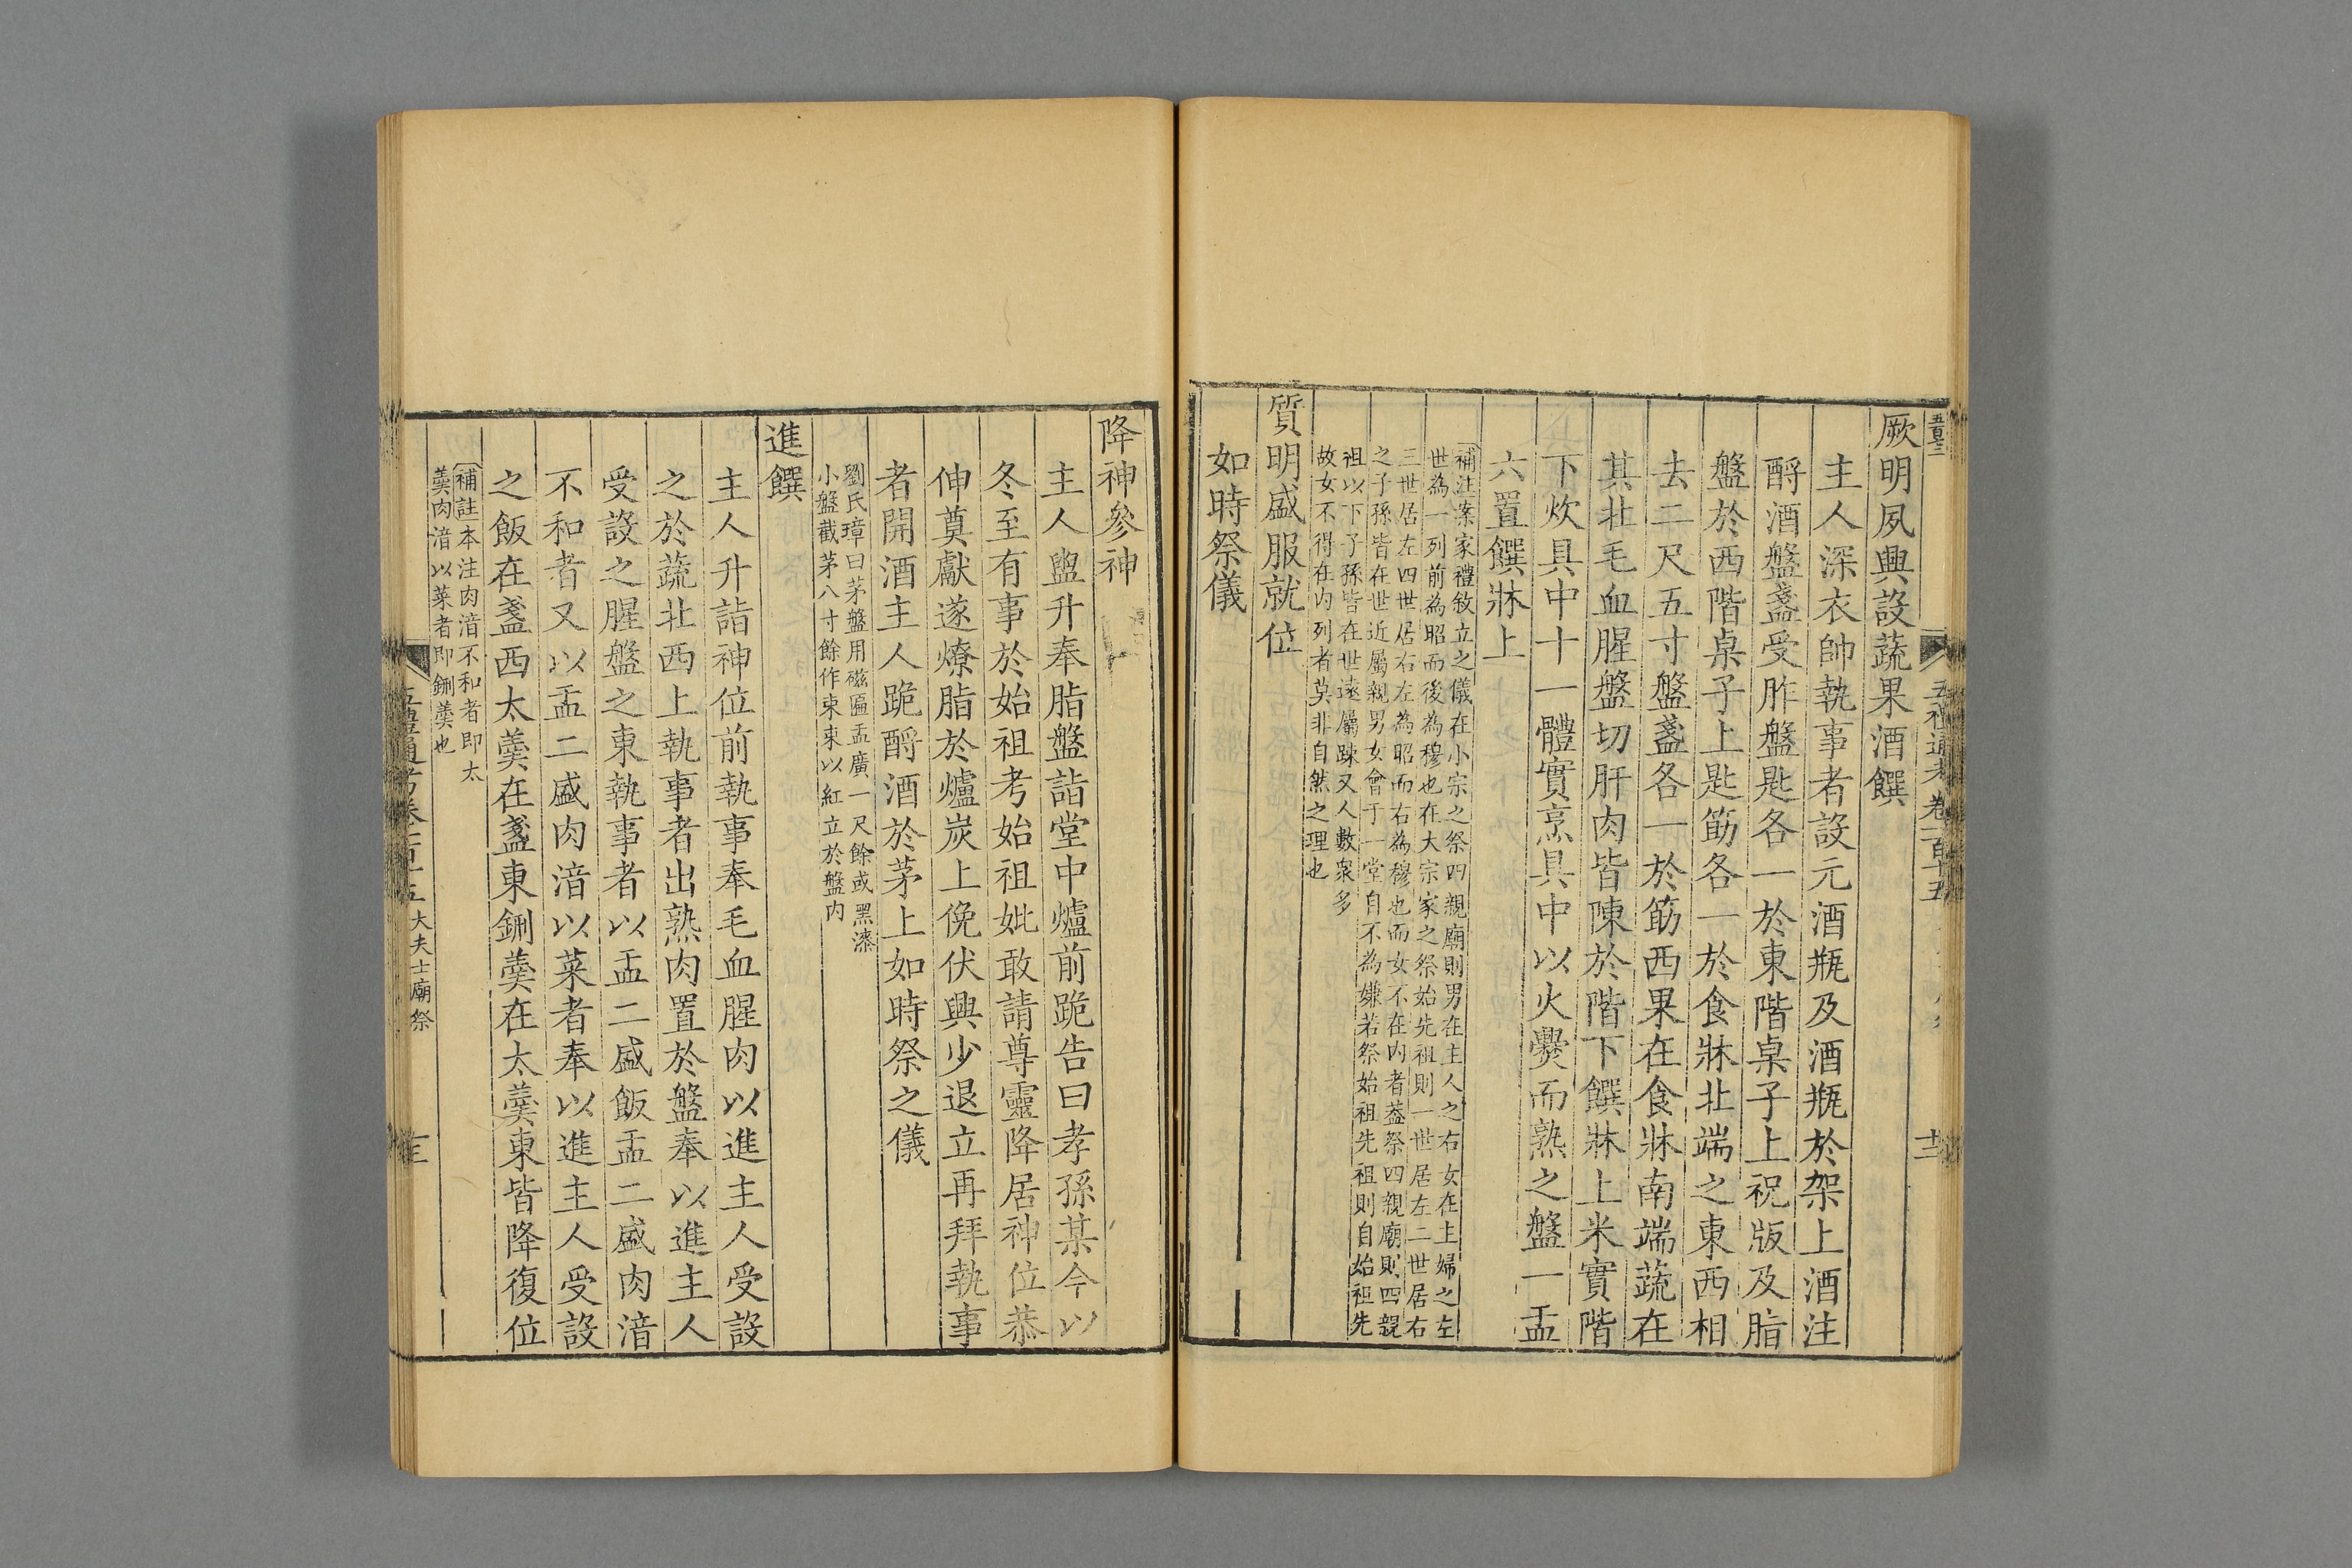 厥明夙興設蔬果酒饌
主人深衣帥執事者設元酒瓶及酒瓶於架上酒注
酹酒盤盞受胙盤匙各一於東階桌子上祝版及脂
盤於西階桌子上匙筯各一於食牀北端之東西相
去二尺五寸盤盞各一於筯西果在食牀南端蔬在
其北毛血腥盤切肝肉皆陳於階下饌牀上米實階
下炊具中十一體實烹具中以火爨而熟之盤一盂
六置饌牀上
補注案家禮敘立之儀在小宗之祭四親廟則男在主人之右女在主婦之左
世為一列前為昭而後為穆也在大宗家之祭始先祖則一世居左二世居右
三世居左四世居右左為昭而右為穆也而女不在內者蓋祭四親廟則四親
之子孫皆在世近屬親男女會于一堂自不為嫌若祭始祖先祖則自始祖先
祖以下子孫皆在世遠屬踈又人數衆多
故女不得在內列者莫非自然之理也
質明盛服就位
如時祭儀
降神參神
主人盥升奉脂盤詣堂中爐前跪告曰孝孫某今以
冬至有事於始祖考始祖妣敢請尊靈降居神位恭
伸奠獻遂燎脂於爐炭上俛伏興少退立再拜執事
者開酒主人跪酹酒於茅上如時祭之儀
劉氏璋曰茅盤用磁匾盂廣一尺餘或黑漆
小盤截茅八寸餘作束束以紅立於盤內
進饌
主人升詣神位前執事奉毛血腥肉以進主人受設
之於蔬北西上執事者出熟肉置於盤奉以進主人
受設之腥盤之東執事者以盂二盛飯盂二盛肉湆
不和者又以盂二盛肉湆以菜者奉以進主人受設
之飯在盞西太羹在盞東鉶羹在太羹東皆降復位
補註本注肉湆不和者即太
羹肉湆以菜者即鉶羹也
五禮通考卷一百十五 大夫士廟祭